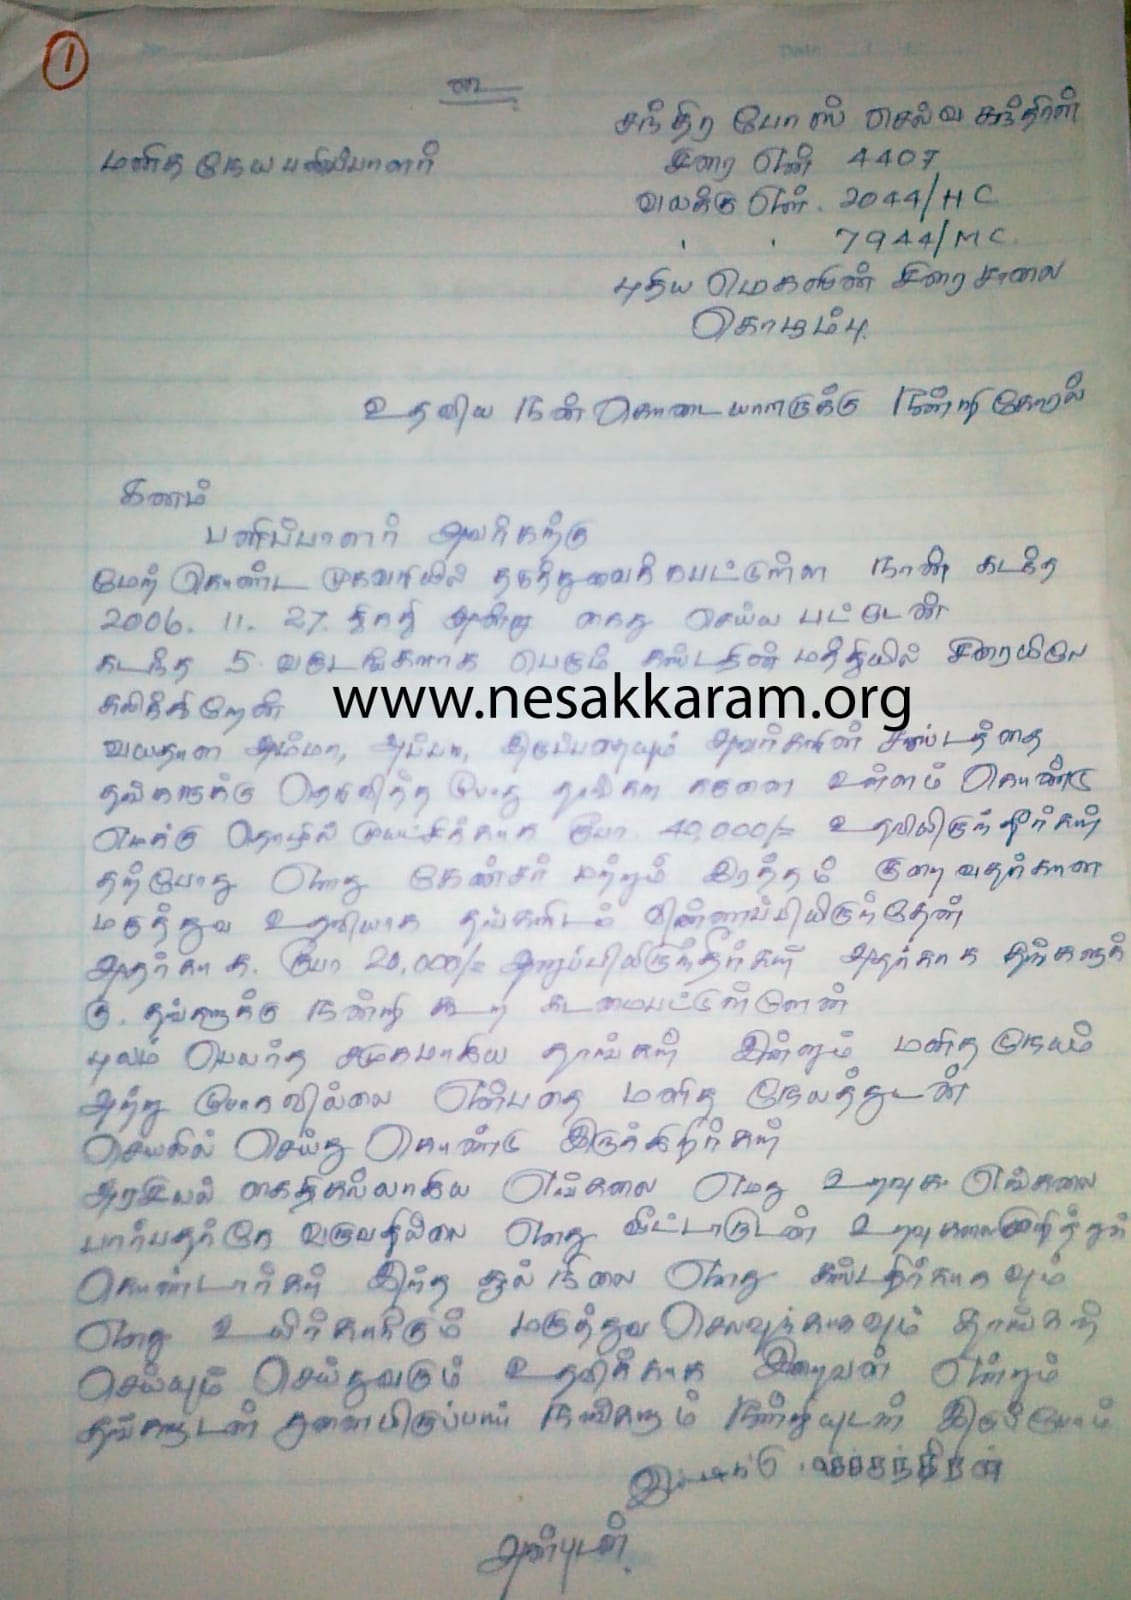 1
உ
சந்திர போஸ் செல்வ சந்திரன்
மனித நேய பணிப்பாளர்
சிறை எண் 4407
வலக்கு எண். 2044/HC
" " 7944/MC
புதிய மெகசின் சிறைசாலை
கொழும்பு.
உதவிய நன்கொடையாளருக்கு நன்றி கோறல்
கனம்
பணிப்பாளர் அவர்கற்கு
மேற் கொண்ட முகவரியில் தடுத்துவைக்கபட்டுள்ள நான் கடந்த
2006. 11. 27. திகதி அன்று கைது செய்ய பட்டேன்
கடந்த 5 வருடங்களாக பெரும் கஸ்டதின் மத்தியில் சிறையிலே
கலிக்கிறேன்
www.nesakkaram.org
வயதான அம்மா, அப்பா, இருப்பதையும் அவர்களின் கஸ்டத்தை
தங்களுக்கு தெரிவித்த போது தாங்கள் கருனை உள்ளம் கொண்டு
எமக்கு தொழில் முயட்சிக்காக ரூபா 40,000/= உதவியிருந்தீர்கள்
தற்போது எனது கேன்சர் மற்றும் இரத்தம் குறைவதற்கான
மருத்துவ உதவியாக தங்களிடம் விண்ணப்பியிருந்தேன்
அதற்காக. ரூபா 20,000/= அனுப்பியிருந்தீர்கள் அதற்காக தங்களுக்
கு. தங்களுக்கு நன்றி கூற கடமைபட்டுள்ளேன்
புலம் பெலர்த சமுகமாகிய தாங்கள் இன்னும் மனித நேயம்
அற்று போகவில்லை என்பதை மனித நேலத்துடன்
செயலில் செய்து கொண்டு இருக்கிறீர்கள்
அரசியல் கைதிகல்லாகிய எங்கலை எமது உறவுக எங்கலை
பார்பதற்கே வருவதில்லை எனது வீட்டாருடன் உறவுகலை முறித்துக்
கொண்டார்கள் இந்த சூல் நிலை எனது கஸ்டதிர்காகவும்
எனது உயிர்காக்கும் மருத்துவ செலவுற்காகவும் தாங்கள்
செய்யும் செய்துவரும் உதவிக்காக இறைவன் என்றும்
தங்களுடன் துனையிருப்பார் நாங்களும் நன்றியுடன் இருப்போம்
இப்படிக்கு செ.சந்திரன்
அன்புடன்.